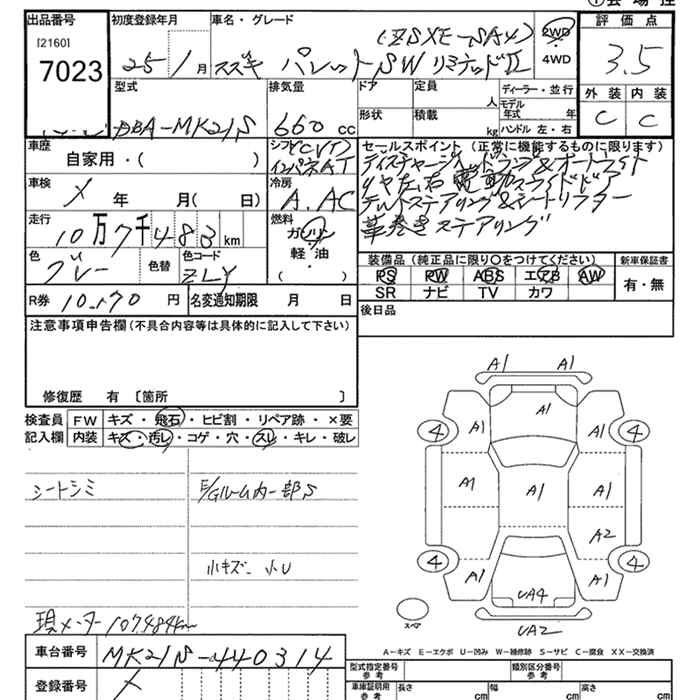 ①会場控
出品番号 初度登録年月 車名・グレード 評価点
[2160]
7023
25 / 1 月
スズキ パレットSW リミテッドII
(ZSXE-SA4)
2WD
・
4WD
3.5
型式 排気量 ドア 定員 ディーラー・並行
DBA-MK21S 660 cc
人 モデル年式 年
形状 積載 kg ハンドル 左・右
外装 内装
C C
車歴 自家用・( )
シフト(CVT)
インパネAT
セールスポイント (正常に機能するものに限ります)
ディスチャージヘッドランプ&オートライト
リヤ左右電動スライドドア
チルトステアリング&シートリフター
革巻きステアリング
車検 × 年 月( 日)
冷房
A.AC
走行
10万7千483km
燃料
ガソリン
・
軽油
・
( )
色 グレー 色替 色コード ZLY
装備品 (純正品に限り○をつけてください) 新車保証書
PS PW ABS エアB AW
SR ナビ TV カワ
有・無
R券 10,170 円 名変通知期限 月 日
後日品
注意事項申告欄 (不具合内容等は具体的に記入して下さい)
修復歴 有 〔箇所 〕
検査員記入欄
FW キズ・飛石・ヒビ割・リペア跡・×要
内装 キズ・汚レ・コゲ・穴・スレ・キレ・破レ
シートシミ
E/Gルーム内一部S
小キズ、小U
現メーター107484km
A1 A1
A1
4 A1 A1 4
A1 A1 A1
A2
4 A1 A1 4
UA4
スペア
UA2
A-キズ E-エクボ U-凹み W-補修跡 S-サビ C-腐食 XX-交換済
車台番号 MK21S-440314
登録番号 ×
型式指定番号 参考 類別区分番号 参考
車庫証明用 参考 長さ cm 幅 cm 高さ cm